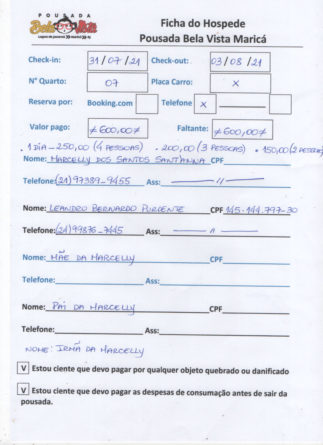 POUSADA
Bela Vista
Ficha do Hospede
Pousada Bela Vista Maricá
Check-in: 31/07/21 Check-out: 03/08/21
N° Quarto: 07 Placa Carro: X
Reserva por: Booking.com Telefone X
Valor pago: ≠600,00≠ Faltante: ≠600,00≠
. 1 DIA - 250,00 (4 PESSOAS) . 200,00 (3 PESSOAS) . 150,00 (2 PESSOAS)
Nome: MARCELLY DOS SANTOS SANT'ANNA CPF
Telefone: (21) 97389-9455 Ass: — 11 —
Nome: LEANDRO BERNARDO CPF 145.144.797-30
Telefone: (21) 99876-7445 Ass: — 11 —
Nome: MÃE DA MARCELLY CPF
Telefone: Ass:
Nome: PAI DA MARCELLY CPF
Telefone: Ass:
NOME: IRMÃ DA MARCELLY
V Estou ciente que devo pagar por qualquer objeto quebrado ou danificado
V Estou ciente que devo pagar as despesas de consumação antes de sair da
pousada.